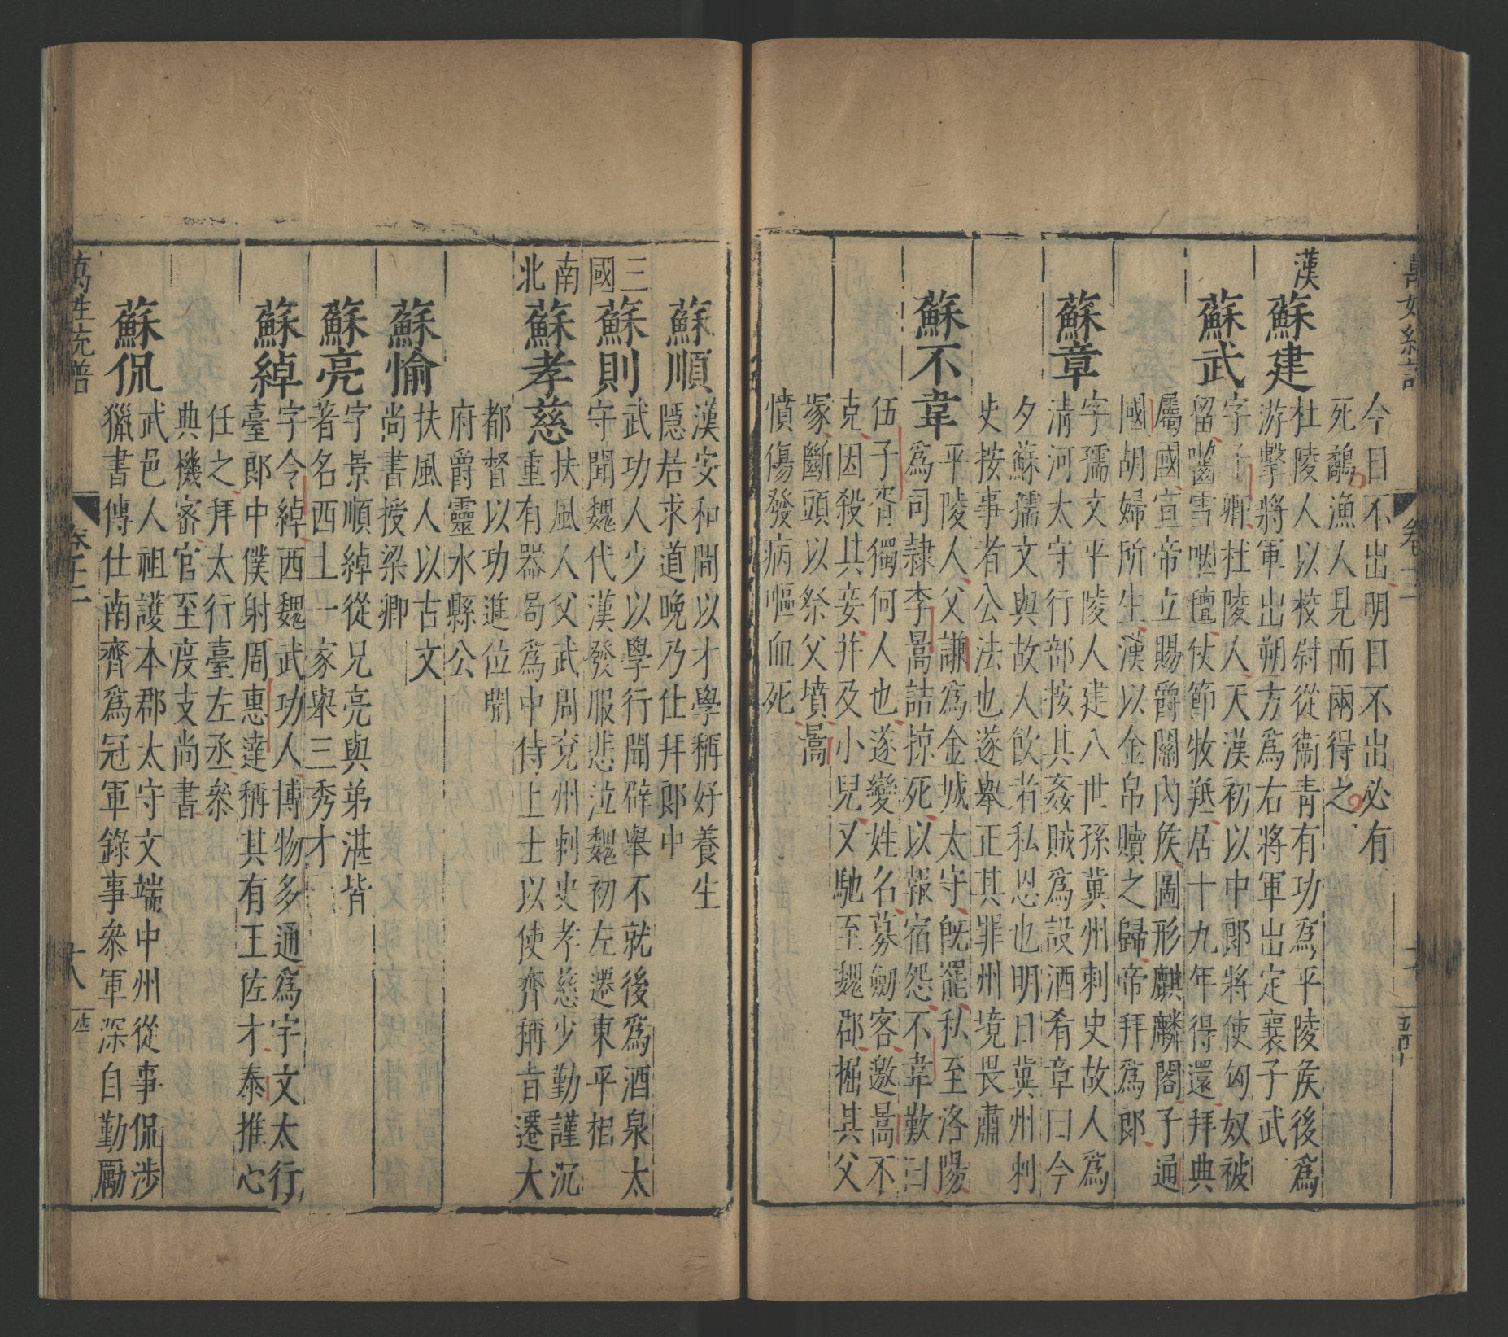 今日不出明日不出必有
死鷸漁人見而兩得之
漢
蘇建
杜陵人以校尉從衞青有功爲平陵侯後爲
游擊將軍出朔方爲右將軍出定襄子武
蘇武
字子卿杜陵人天漢初以中郎將使匈奴被
留嚙雪咽氊仗節牧羝居十九年得還拜典
屬國宣帝立賜爵關內侯圖形麒麟閣子通
國胡婦所生漢以金帛贖之歸帝拜爲郎
蘇章
字孺文平陵人建八世孫冀州刺史故人爲
清河太守行部按其姦賊爲設酒肴章曰今
夕蘇孺文與故人飲者私恩也明日冀州刺
史按事者公法也遂舉正其罪州境畏肅
蘇不韋
平陵人父謙爲金城太守旣罷私至洛陽
爲司隸李暠詰掠死以報宿怨不韋歎曰
伍子胥獨何人也遂變姓名募劒客邀暠不
克因殺其妾并及小兒又馳至魏郡掘其父
塚斷頭以祭父墳暠
憤傷發病嘔血死
蘇順
漢安和間以才學稱好養生
隱居求道晚乃仕拜郎中
三國
蘇則
武功人少以學行聞辟舉不就後爲酒泉太
守聞魏代漢發服悲泣魏初左遷東平相
南北
蘇孝慈
扶風人父武周兗州刺史孝慈少勤謹沉
重有器局爲中侍上士以使齊稱旨遷大
都督以功進位開
府爵靈水縣公
蘇愉
扶風人以古文
尚書授梁卿
蘇亮
字景順綽從兄亮與弟湛皆
著名西土一家舉三秀才
蘇綽
字令綽西魏武功人博物多通爲宇文太行
臺郎中僕射周惠達稱其有王佐才泰推心
任之拜太行臺左丞叅
典機密官至度支尚書
蘇侃
武邑人祖護本郡太守文端中州從事侃涉
獵書傳仕南齊爲冠軍錄事叅軍深自勤勵
萬姓統譜
卷十二
十八